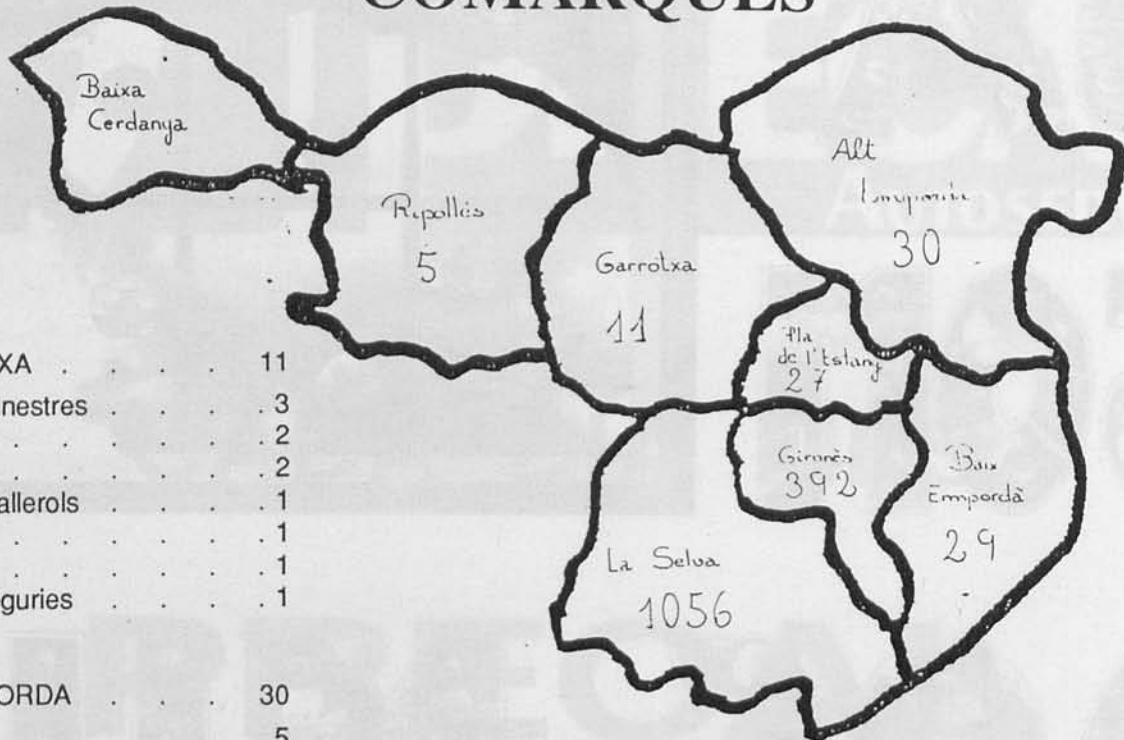 COMARQUES
Baixa
Cerdanya
Ripollès
5
Garrotxa
11
Alt
30
Pla
de l'Estany
27
Gironès
392
Baix
Empordà
29
La Selva
1056
XA . . . . 11
nestres . . . . 3
. . . . . . 2
. . . . . . 2
allerols . . . . 1
. . . . . . 1
. . . . . . 1
guries . . . . 1
ORDA . . . 30
5